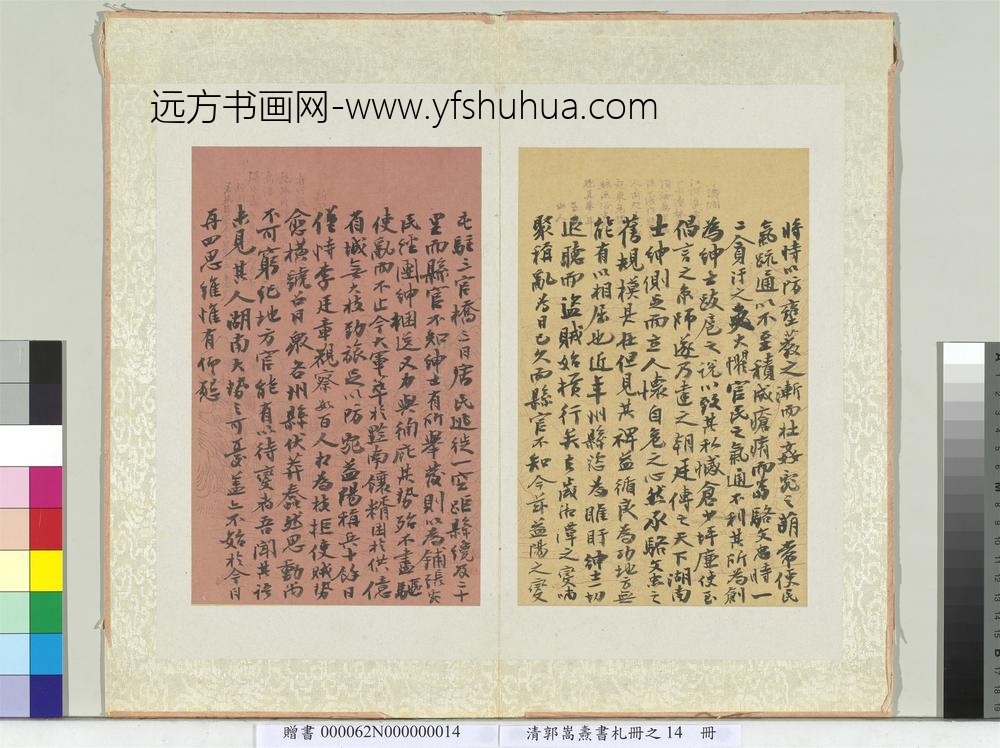 远方书画网-www.yfshuhua.com
時時以防壅蔽之漸而杜姦宄之萌常使民
氣疏通以不至積成瘡痏而當駱文忠時一
二貪汙之吏大懼官民之氣通不利其所為創
為紳士跋扈之說以發其私憾倉少坪廉使至
倡言之京師遂乃達之朝廷傳之天下湖南
士紳側足而立人懷自危之心然承駱文忠之
舊規模具在但見其裨益循良為功地方無
能有以相屈也近年州縣恣為睢盱紳士切
退聽而盜賊始橫行矣去歲湘潭之變哨
聚稱亂為日已久而縣官不知今茲益陽之變
屯駐三官橋三日居民逃徙一空距縣纔及二十
里而縣官不知紳士有所舉發則以為鋪張
民經團紳捆送又力與徇庇其勢殆不盡驅
使亂而不止今大軍萃於黔南饟糈困於供億
省城無大枝勁旅足以防寇益陽稱兵十餘日
僅恃李廷章觀察數百人力為枝拒使賊勢
愈橫號召日眾各州縣伏莽森然思動尚
不可窮紀地方官能有以待變者吾聞其語
未見其人湖南大勢之可憂蓋亦不始於今日
再四思維惟有仰懇
贈書 000062N000000014
清郭嵩燾書札冊之 14 冊